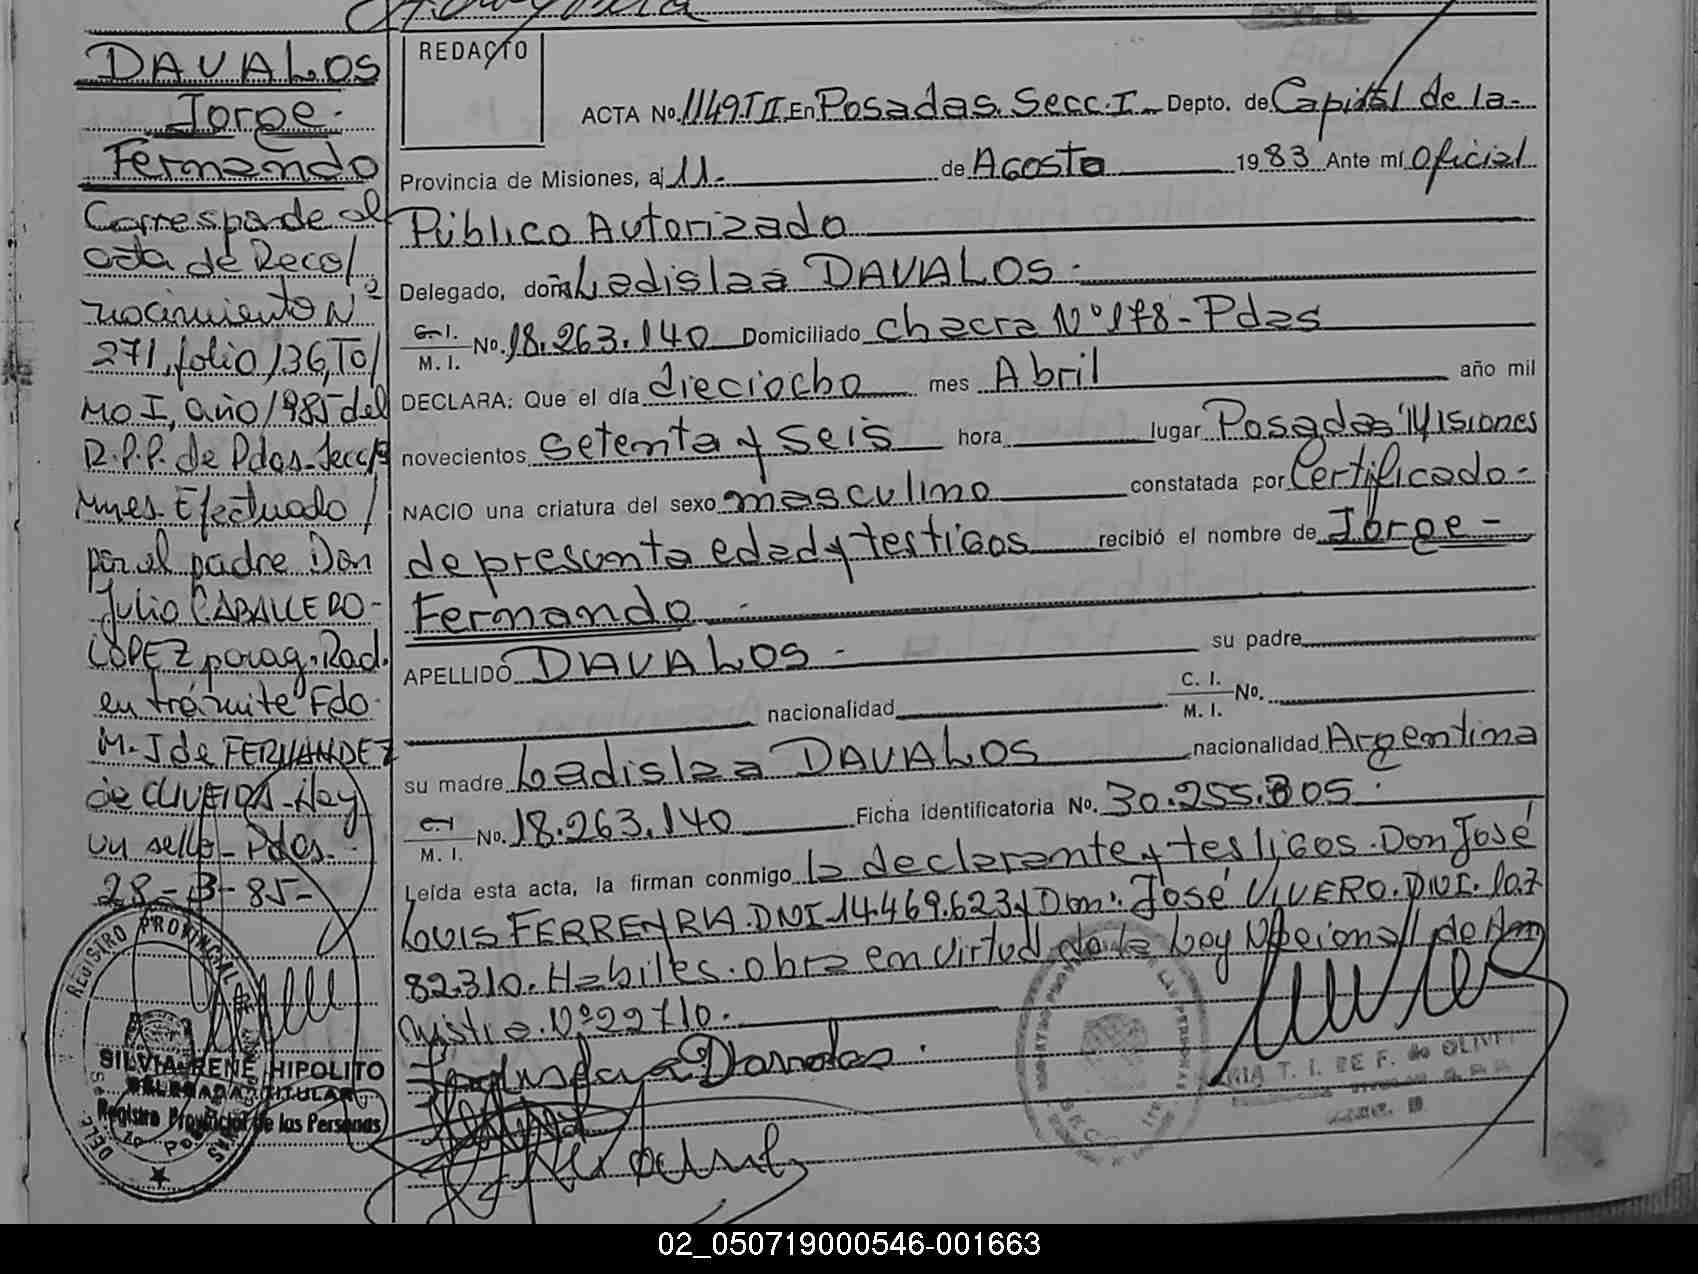 DAVALOS
Jorge-
Fernando
Corresponde al
acta de Reco/
nocimiento Nº
271, folio 136, To/
mo I, año 1985 del
R.P.P. de Pdas-Secc 1ª
Mnes. Efectuado /
por el padre Don
Julio CABALLERO-
LOPEZ parag. Rad.
en trámite Fdo.
M. I de FERNANDEZ
de OLIVEIRA - Hay
un sello - Pdas.
28-3-85-
REGISTRO PROVINCIAL DE LAS PERSONAS
SILVIA RENE HIPOLITO
DELEGADA TITULAR
Registro Provincial de las Personas
REDACTO
ACTA No. 1149 T II En Posadas Secc. I- Depto. de Capital de la-
Provincia de Misiones, a 11.- de Agosto 1983 Ante mí Oficial
Público Autorizado
Delegado, doña Ladislaa DAVALOS.-
C. I.
M. I. No. 18.263.140 Domiciliado Chacra Nº 178-Pdas
DECLARA: Que el día dieciocho mes Abril año mil
novecientos setenta y seis hora lugar Posadas Misiones
NACIO una criatura del sexo masculino constatada por Certificado-
de presunta edad y testigos recibió el nombre de Jorge-
Fernando.-
APELLIDO DAVALOS.- su padre
nacionalidad C. I.
M. I. No.
su madre Ladislaa DAVALOS nacionalidad Argentina
C. I.
M. I. No. 18.263.140 Ficha identificatoria No. 30.255.805.
Leída esta acta, la firman conmigo la declarante y testigos. Don José
Louis FERREYRA. DNI. 14.469.623 y Don: José VIVERO. DNI. 10.7
82.310. Habiles. obra en virtud de la Ley Nacional de Am
nistia. Nº 22710.-
MARIA T. I. DE F. de OLIVEIRA
02_050719000546-001663